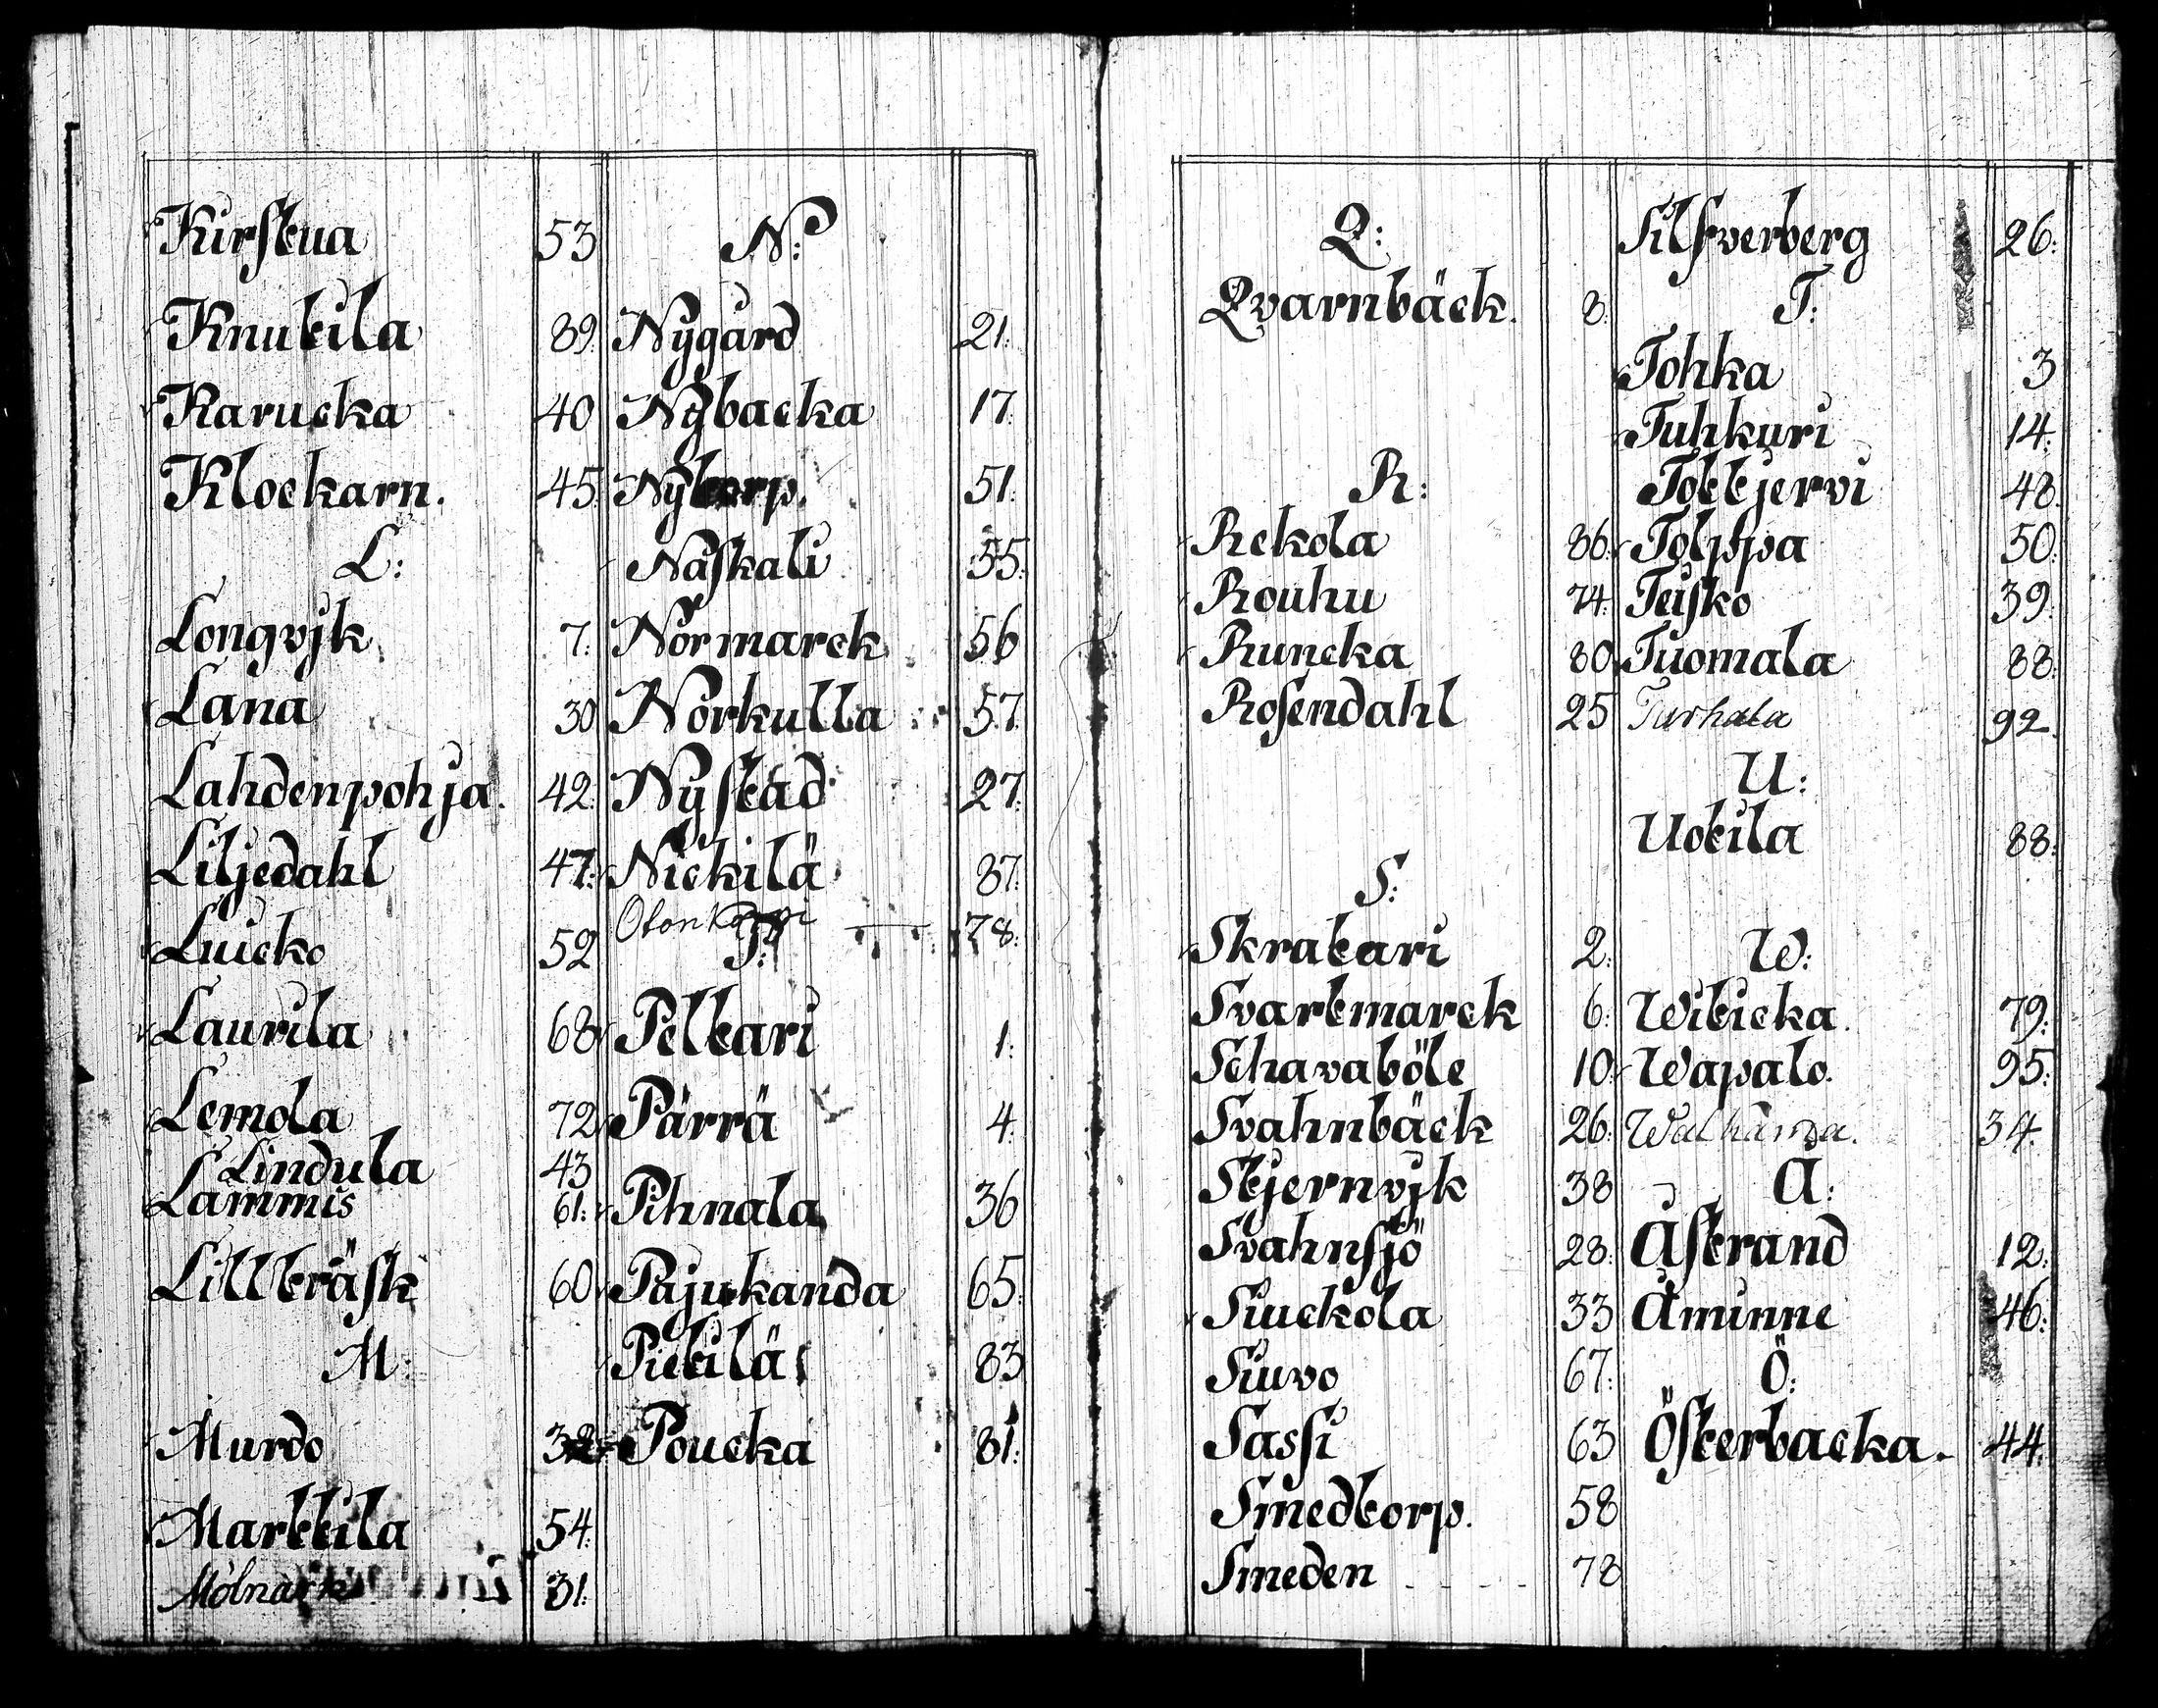 Kirstua 53
Knutila 89:
Karucka 40
Klockarn. 45
L:
Longvjk 7:
Lana 30
Lahdenpohja. 42:
Liljedahl 47:
Luicko 52
Laurila 68
Lemola 72
Lindula 43
Lammis 61:
Lillträsk 60
M:
Murdo
Marttila 54:
31:
N:
Nÿgård 21:
Nÿbacka 17:
Nÿtorp. 51:
Naskali 55:
Normarck 56
Norkulla 57:
Nÿstad 27:
Nickilä 87:
78:
P:
Peltari 1:
Pärrä 4:
Pihnala 36
Pajukanda 65:
Pietilä 83
Poucka 81:
Q:
Qvarnbäck. 8:
R:
Rekola 86:
Rouhu 74:
Runcka 80
Rosendahl 25
S:
Skratari 2:
Svartmarck 6:
Schavaböle 10:
Svahnbäck 26:
Stjernvjk 38
Svahnsjö 28:
Siuckola 33
Siuvo 67:
Sassi 63
Smedtorp. 58
Smeden 78
Silfverberg 26:
T:
Tohka 3
Tuhkuri 14:
Tottjervi 48
Tolppa 50:
Teisko 39:
Tuomala 88:
Turhala 92.
U:
Uotila 88:
W:
Witicka. 79:
Wapalo. 95:
34.
Å:
Åstrand 12:
Åminne 46:
Ö:
Österbacka. 44: